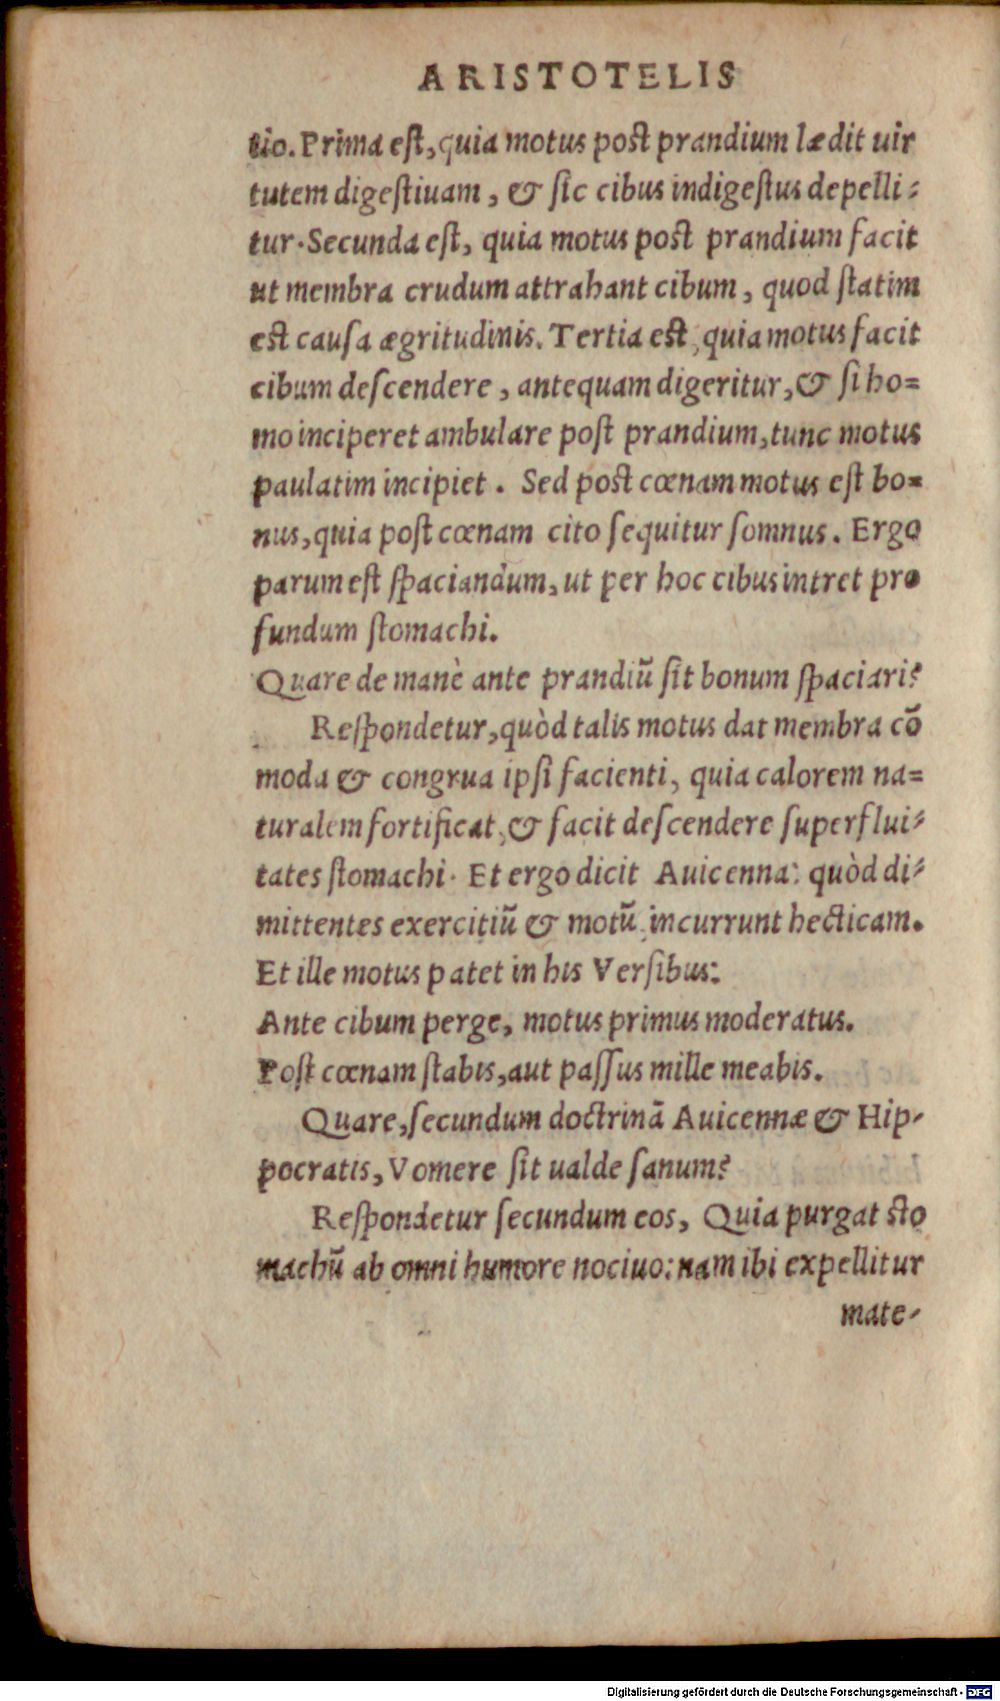 ARISTOTELIS
tio. Prima est, quia motus post prandium lædit uir
tutem digestiuam, & sic cibus indigestus depelli-
tur. Secunda est, quia motus post prandium facit
ut membra crudum attrahant cibum, quod statim
est causa ægritudinis. Tertia est, quia motus facit
cibum descendere, antequam digeritur, & si ho=
mo inciperet ambulare post prandium, tunc motus
paulatim incipiet. Sed post cœnam motus est bo=
nus, quia post cœnam cito sequitur somnus. Ergo
parum est spaciandum, ut per hoc cibus intret pro
fundum stomachi.
Quare de manè ante prandiũ sit bonum spaciari?
Respondetur, quòd talis motus dat membra cõ
moda & congrua ipsi facienti, quia calorem na=
turalem fortificat, & facit descendere superflui-
tates stomachi. Et ergo dicit Auicenna: quòd di-
mittentes exercitiũ & motũ, incurrunt hecticam.
Et ille motus patet in his Versibus:
Ante cibum perge, motus primus moderatus.
Post cœnam stabis, aut passus mille meabis.
Quare, secundum doctrinã Auicennæ & Hip-
pocratis, Vomere sit ualde sanum?
Respondetur secundum eos, Quia purgat sto
machũ ab omni humore nociuo: nam ibi expellitur
mate-
Digitalisierung gefördert durch die Deutsche Forschungsgemeinschaft - DFG